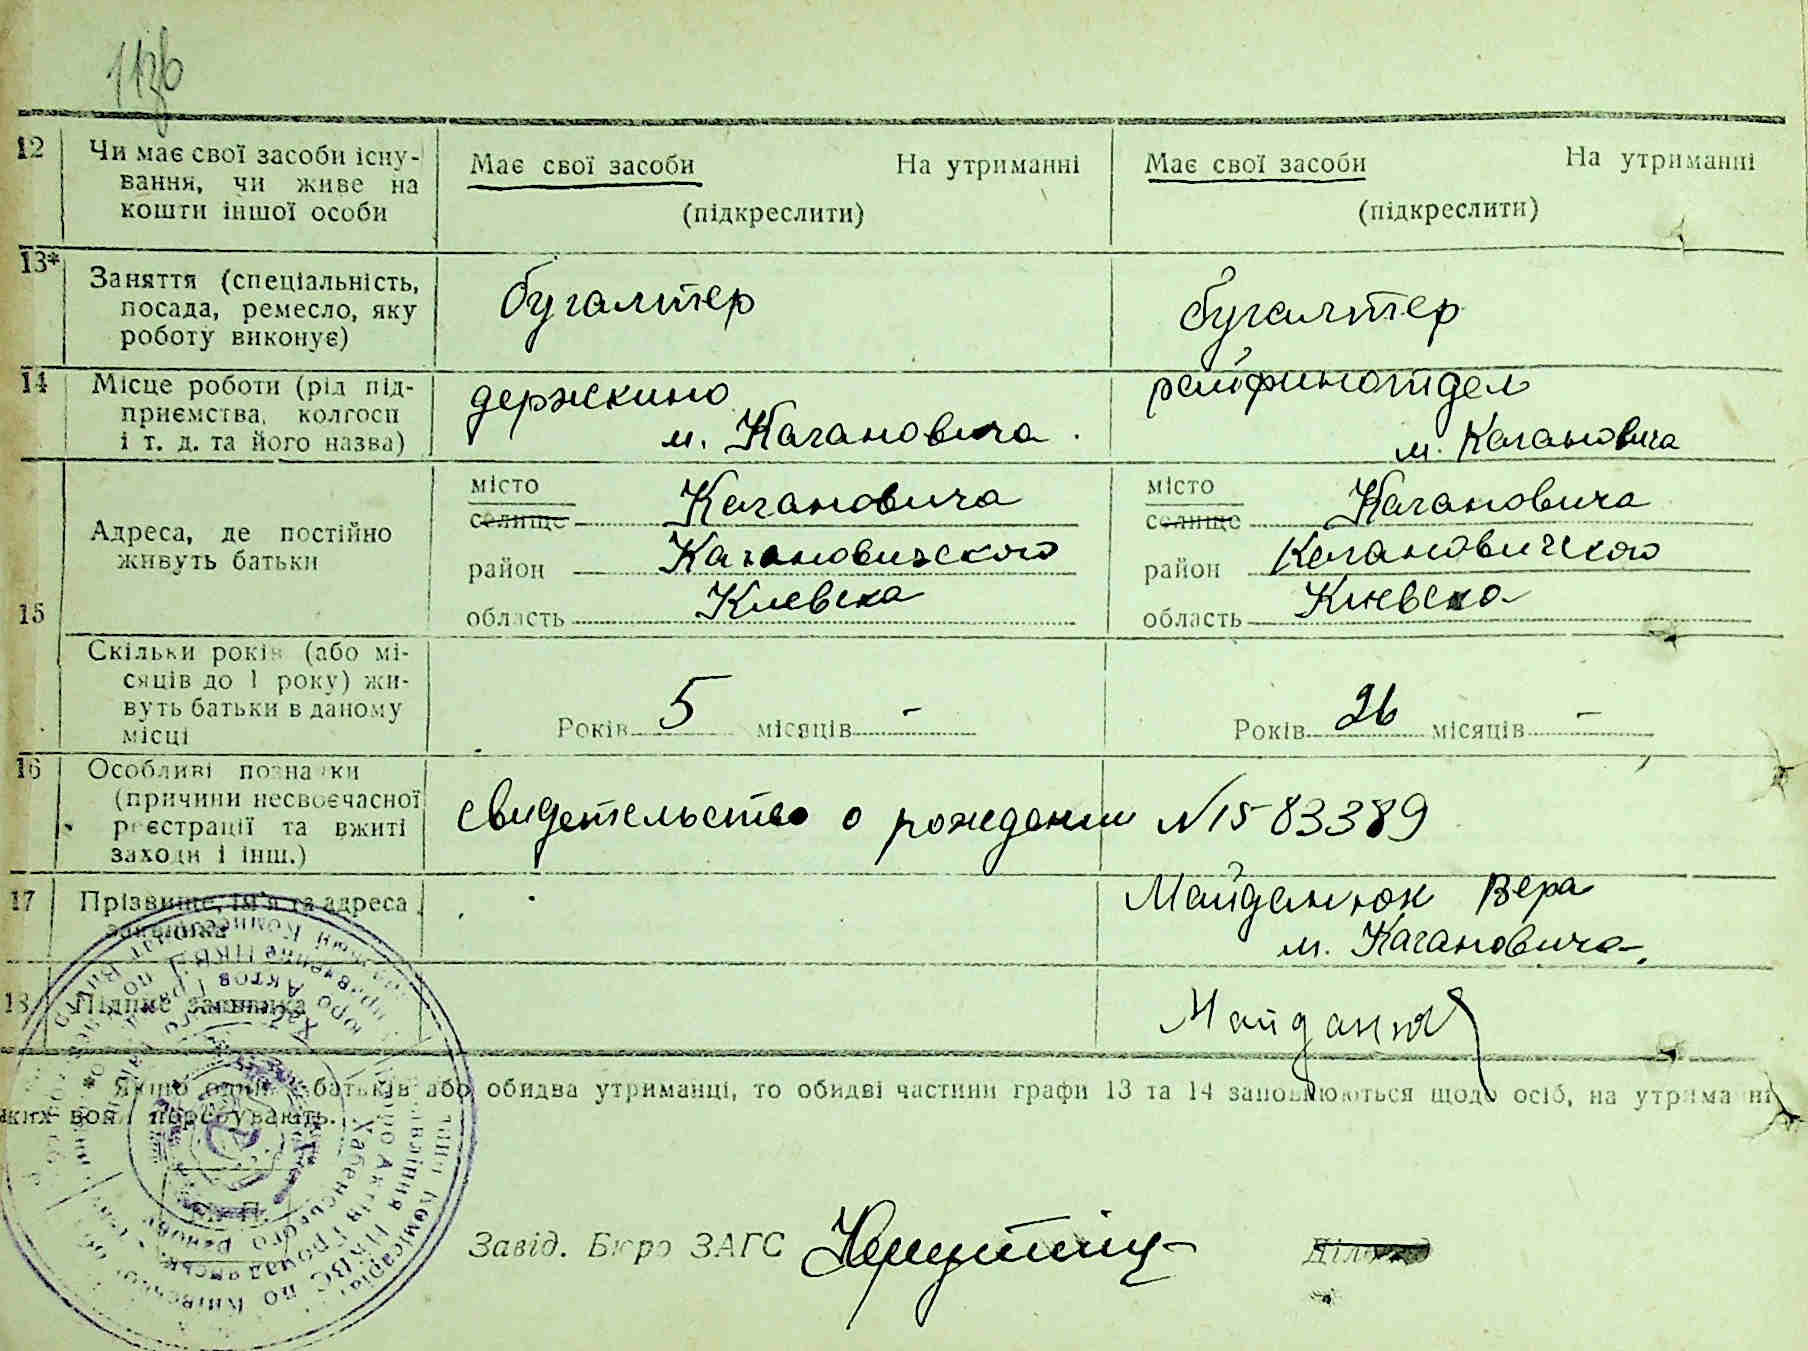 12 Чи має свої засоби існу-
вання, чи живе на
кошти іншої особи
Має свої засоби На утриманні
(підкреслити)
Має свої засоби На утриманні
(підкреслити)
13* Заняття (спеціальність,
посада, ремесло, яку
роботу виконує)
бугалтер
бугалтер
14 Місце роботи (рід під-
приємства, колгосп
і т. д. та його назва)
держкино
м. Кагановича
райфинотдел
м. Кагановича
15
Адреса, де постійно
живуть батьки
місто Кагановича
селище
район Кагановичского
область Киевска
місто Кагановича
селище
район Кагановичского
область Киевска
Скільки років (або мі-
сяців до 1 року) жи-
вуть батьки в даному
місці
Років 5 місяців -
Років 26 місяців -
16 Особливі позначки
(причини несвоєчасної
реєстрації та вжиті
заходи і інш.)
свидетельство о рождении N 15-83389
17 Прізвище, ім'я та адреса
заявника
Майданюк Вера
м. Кагановича
18 Підпис заявника
Майданюк
* Якщо один з батьків або обидва утриманці, то обидві частини графи 13 та 14 заповнюються щодо осіб, на утриманні
яких вони перебувають.
Завід. Бюро ЗАГС